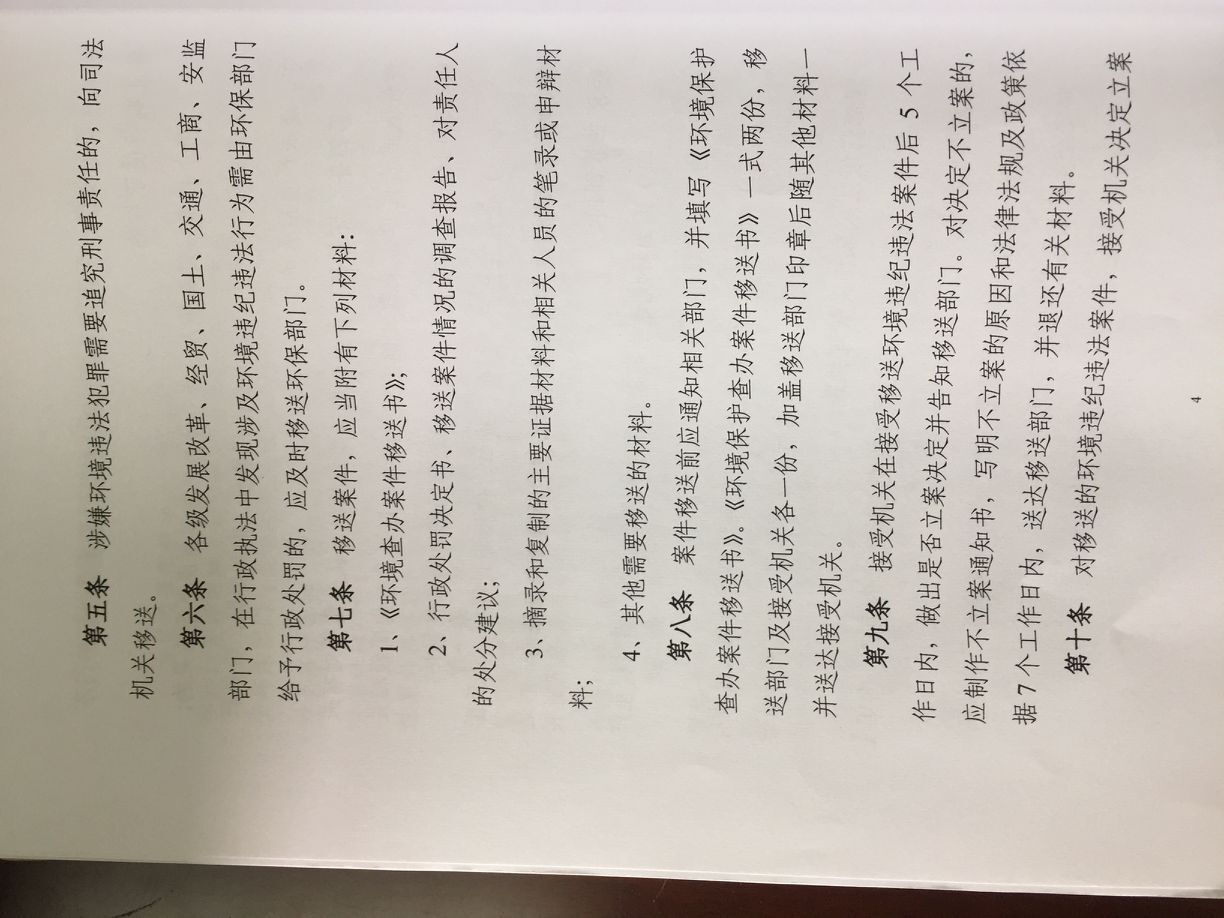 第五条 涉嫌环境违法犯罪需要追究刑事责任的，向司法
机关移送。
第六条 各级发展改革、经贸、国土、交通、工商、安监
部门，在行政执法中发现涉及环境违纪违法行为需由环保部门
给予行政处罚的，应及时移送环保部门。
第七条 移送案件，应当附有下列材料：
1、《环境查办案件移送书》；
2、行政处罚决定书、移送案件情况的调查报告、对责任人
的处分建议；
3、摘录和复制的主要证据材料和相关人员的笔录或申辩材
料；
4、其他需要移送的材料。
第八条 案件移送前应通知相关部门，并填写《环境保护
查办案件移送书》。《环境保护查办案件移送书》一式两份，移
送部门及接受机关各一份，加盖移送部门印章后随其他材料一
并送达接受机关。
第九条 接受机关在接受移送环境违纪违法案件后 5 个工
作日内，做出是否立案决定并告知移送部门。对决定不立案的，
应制作不立案通知书，写明不立案的原因和法律法规及政策依
据 7 个工作日内，送达移送部门，并退还有关材料。
第十条 对移送的环境违纪违法案件，接受机关决定立案
4